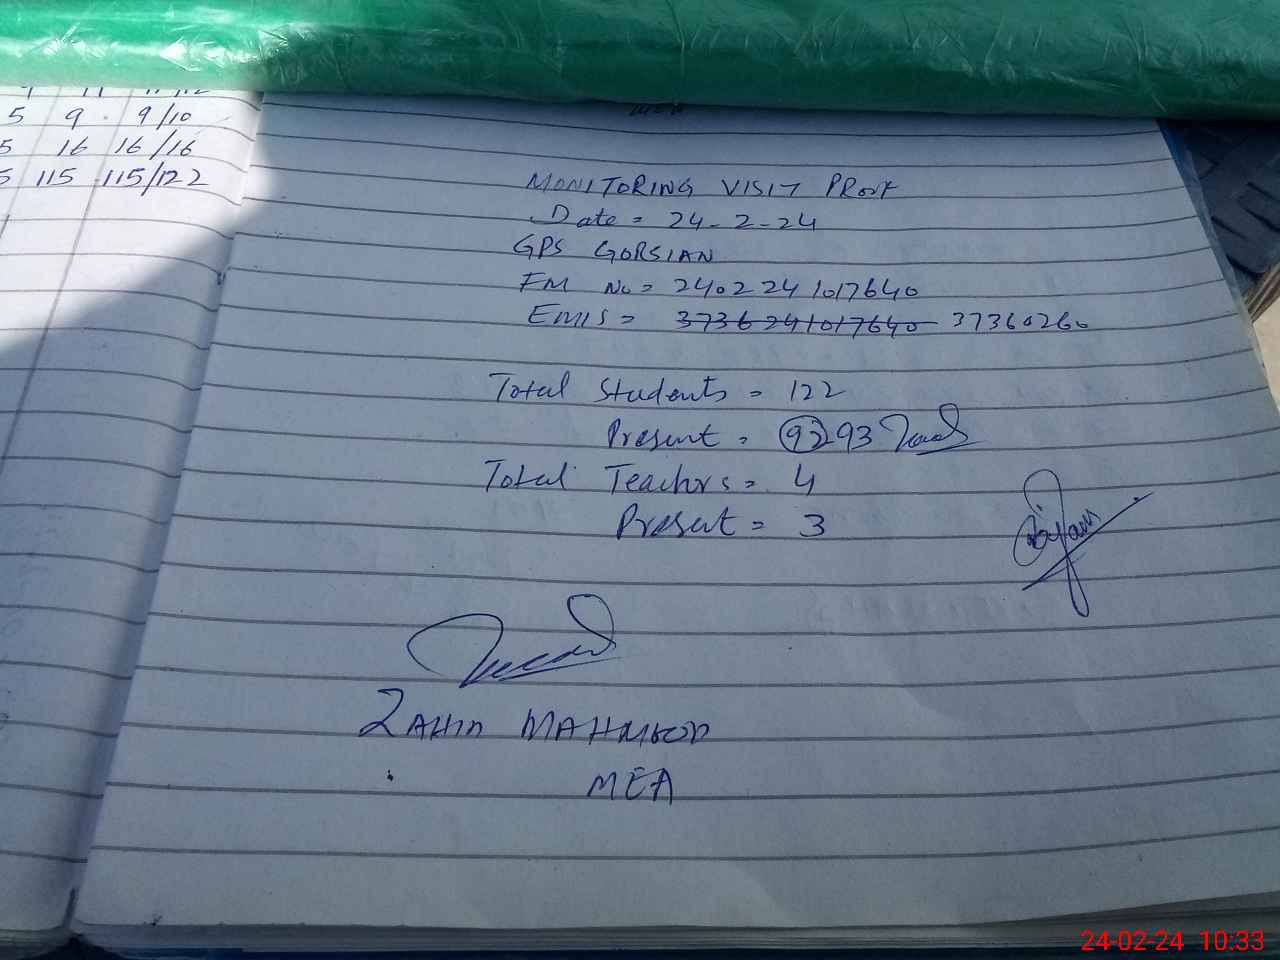 5 9 9/10
5 16 16/16
5 115 115/122
MEA
MONITORING VISIT PROOF
Date = 24-2-24
GPS GORSIAN
FM No = 240224 1017640
EMIS = 3736241017640 37360260
Total Students = 122
Present = 92 93
Total Teachrs = 4
Present = 3
ZAHID MAHMOOD
MEA
24-02-24 10:33